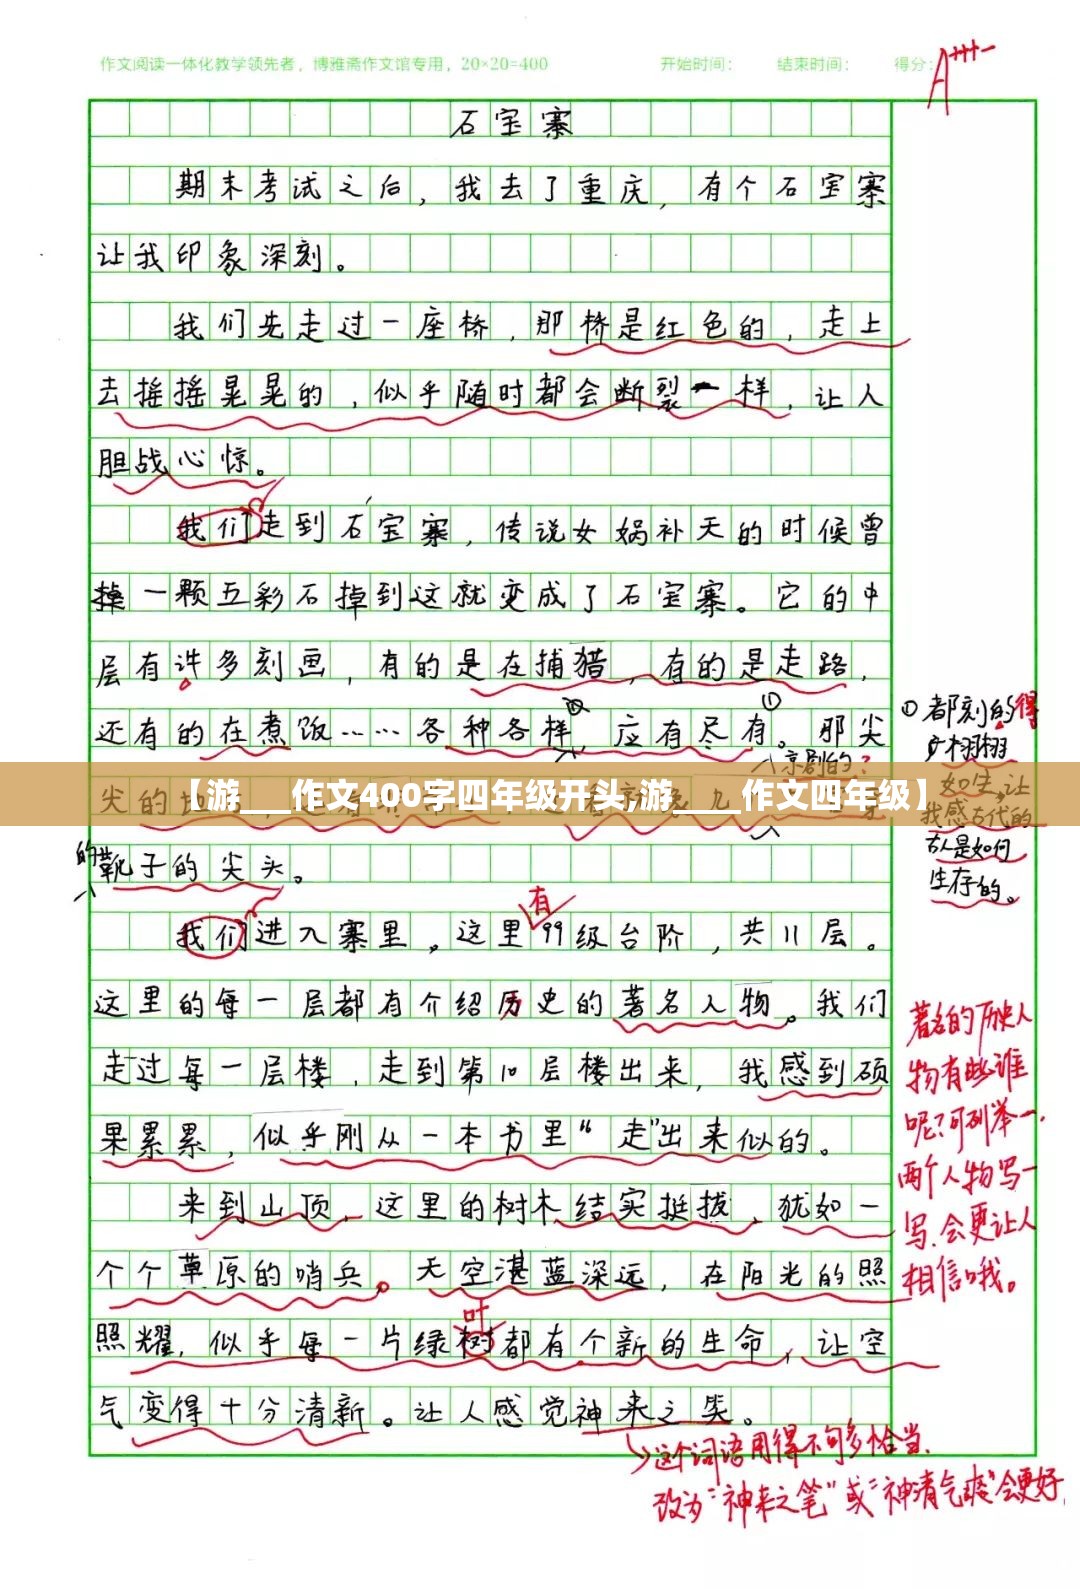 作文阅读一体化教学领先者，博雅斋作文馆专用，20×20=400 开始时间： 结束时间： 得分：
A+++-
石宝寨
期末考试之后，我去了重庆，有个石宝寨
让我印象深刻。
我们先走过一座桥，那桥是红色的，走上
去摇摇晃晃的，似乎随时都会断裂一样，让人
胆战心惊。
我们走到石宝寨，传说女娲补天的时候曾
掉一颗五彩石掉到这就变成了石宝寨。它的中
层有许多刻画，有的是在捕猎，有的是走路，
还有的在煮饭……各种各样，应有尽有。那尖
京剧的
尖的
【游___作文400字四年级开头,游____作文四年级】
的靴子的尖头。
①都刻的得
栩栩
如生,让
我感古代的
古人是如何
生存的。
有
我们进入寨里，这里99级台阶，共11层。
这里的每一层都有介绍历史的著名人物。我们
走过每一层楼，走到第10层楼出来，我感到硕
果累累，似乎刚从一本书里“走”出来似的。
著名的历史人
物有些谁
呢？可列举一、
两个人物写一
写、会更让人
相信哦。
来到山顶，这里的树木结实挺拔，犹如一
个个草原的哨兵。天空湛蓝深远，在阳光的照
叶
照耀，似乎每一片绿树都有个新的生命，让空
气变得十分清新。让人感觉神来之类。
这个词语用得不够恰当，
改为“神来之笔”或“神清气爽”会更好